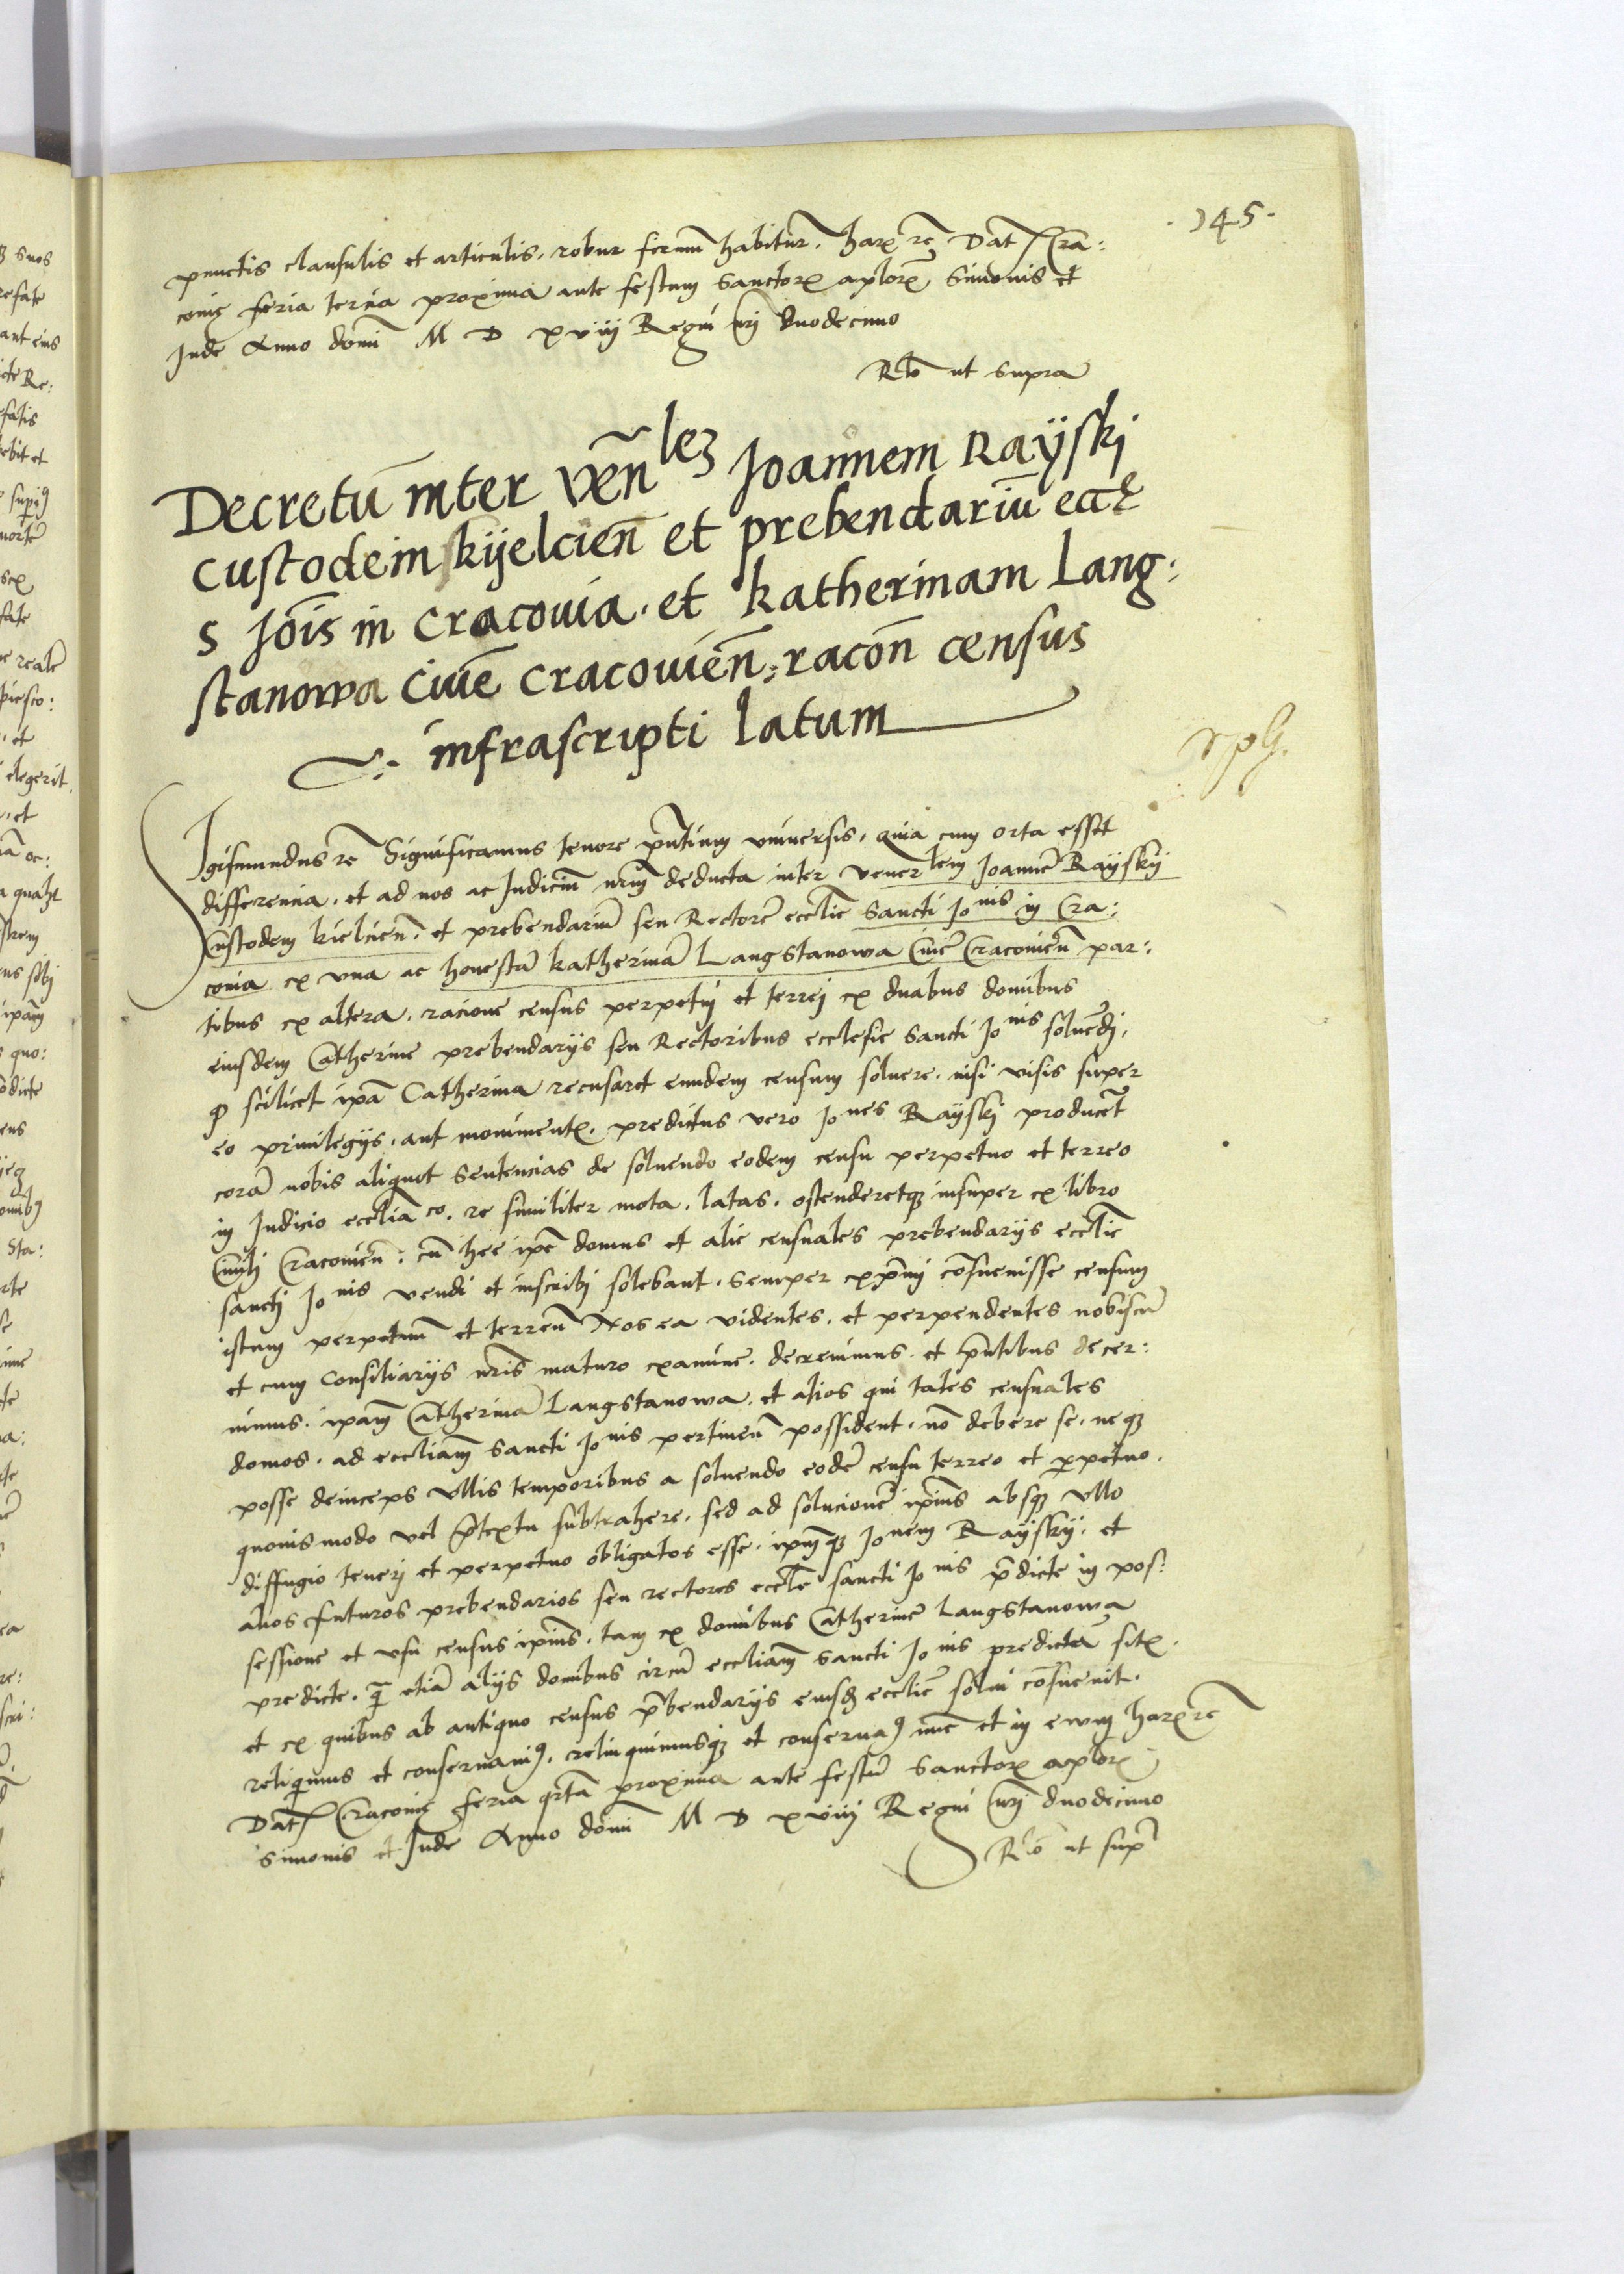 145.
punctis clausulis et articulis, robur firmum habitur̃. harꝝ rẽ Dat̃ Cra:
couię feria tercia proxima ante festum Sanctorꝝ aplorꝝ Simonis et
Jude Anno domĩ M D xviij Regni nrĩ duodecimo
Rło ut supra
Decretũ inter vẽnlez Joannem Rayski
custodem kyelcieñ et prebendariũ eccę
S Joĩs in Cracouia. et katherinam Lang:
stanowa Ciuẽ Cracouieñ: racoñ census
infrascripti latum
Sigismundus rẽ Significamus tenore pñtium vniuersis, quia cum orta esset
differencia, et ad nos ac Judiciũ nrm̃ deducta inter venerlem Joannẽ Raysky
Custodem kielcieñ. et prebendariũ seu Rectorẽ ecclie Sancti Jonis in Cra:
couia ex vna ac honestã katherinã Langstanowa Ciuẽ Cracouieñ par:
tibus ex altera, racione census perpetui et terrei ex duabus domibus
eiusdem Catherine prebendarijs seu Rectoribus ecclesie Sancti Jonis soluẽdi,
ꝙ scilicet ipã Catherina recusaret eundem censum soluere, nisi visis super
eo priuilegijs, aut monumentꝭ. predictus vero Jones Rayski producẽt
corã nobis aliquot Sentencias de soluendo eodem censu perpetuo et terreo
in Judicio ecclia co. re similiter mota, latas. ostenderetqꝫ insuper ex libro
Ciuili Cracouieñ: cũ hee ipẽ domus et alie censuales prebendarijs ecclie
sancti Jonis vendi et inscribi solebant, semper exp̃mi cõsueuisse censum
istum perpetuũ et terreũ Nos ea videntes, et perpendentes nobiscũ
et cum Consiliarijs nrĩs maturo examine, decreuimus. et pñtibus decer:
nimus, ipam̃ Catherinã Langstanowa, et alios qui tales censuales
domos, ad eccliam̃ Sancti Jonis pertineñ possident, nõ debere se, neqꝫ
posse deinceps vllis temporibus a soluendo eodẽ censu terreo et ꝑpetuo,
quouismodo vel p̃textu subtrahere, sed ad solucionẽ ipĩus absqꝫ vllo
diffugio teneri et perpetuo obligatos esse, ipm̃qꝫ Jonem Raysky, et
alios futuros prebendarios seu rectores eccłe sancti Jonis p̃dicte in pos:
sessione et vsu census ipĩus, tam ex domibus Catherine Langstanowa
predicte, q̃ etiã alijs domibus circũ eccliam̃ Sancti Jonis predictã sitꝭ.
et ex quibus ab antiquo census p̃bendarijs eiusd ecclie solui cõsueuit,
reliquimus et conseruauimꝰ, relinquimusqꝫ et conseruamꝰ nũc et in ewm harꝝ rẽ
Dat̃ Cracouię feria qrtã proxima ante festũ Sanctorꝝ aplorꝝ
Simonis et Jude Anno domĩ M D xviij Regni nrĩ duodecimo
Rło ut sup̃